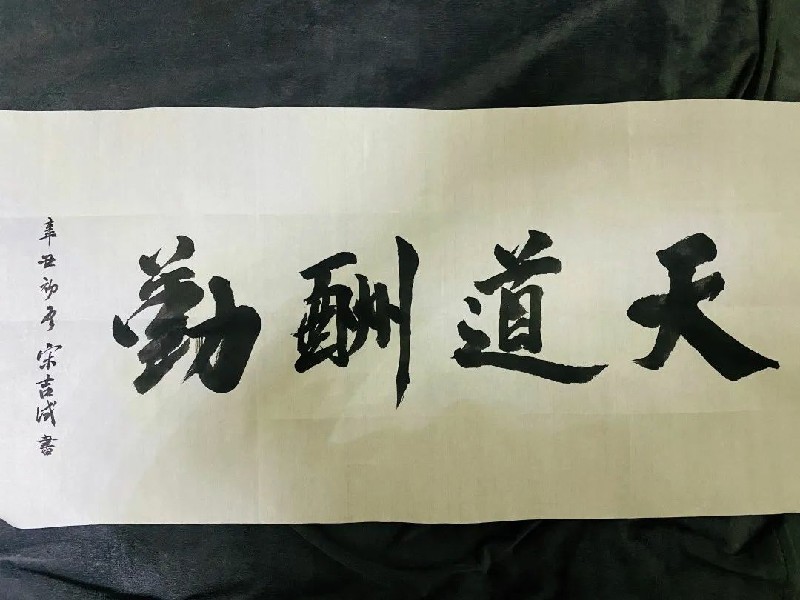 天道酬勤
辛丑初夏宋吉成書